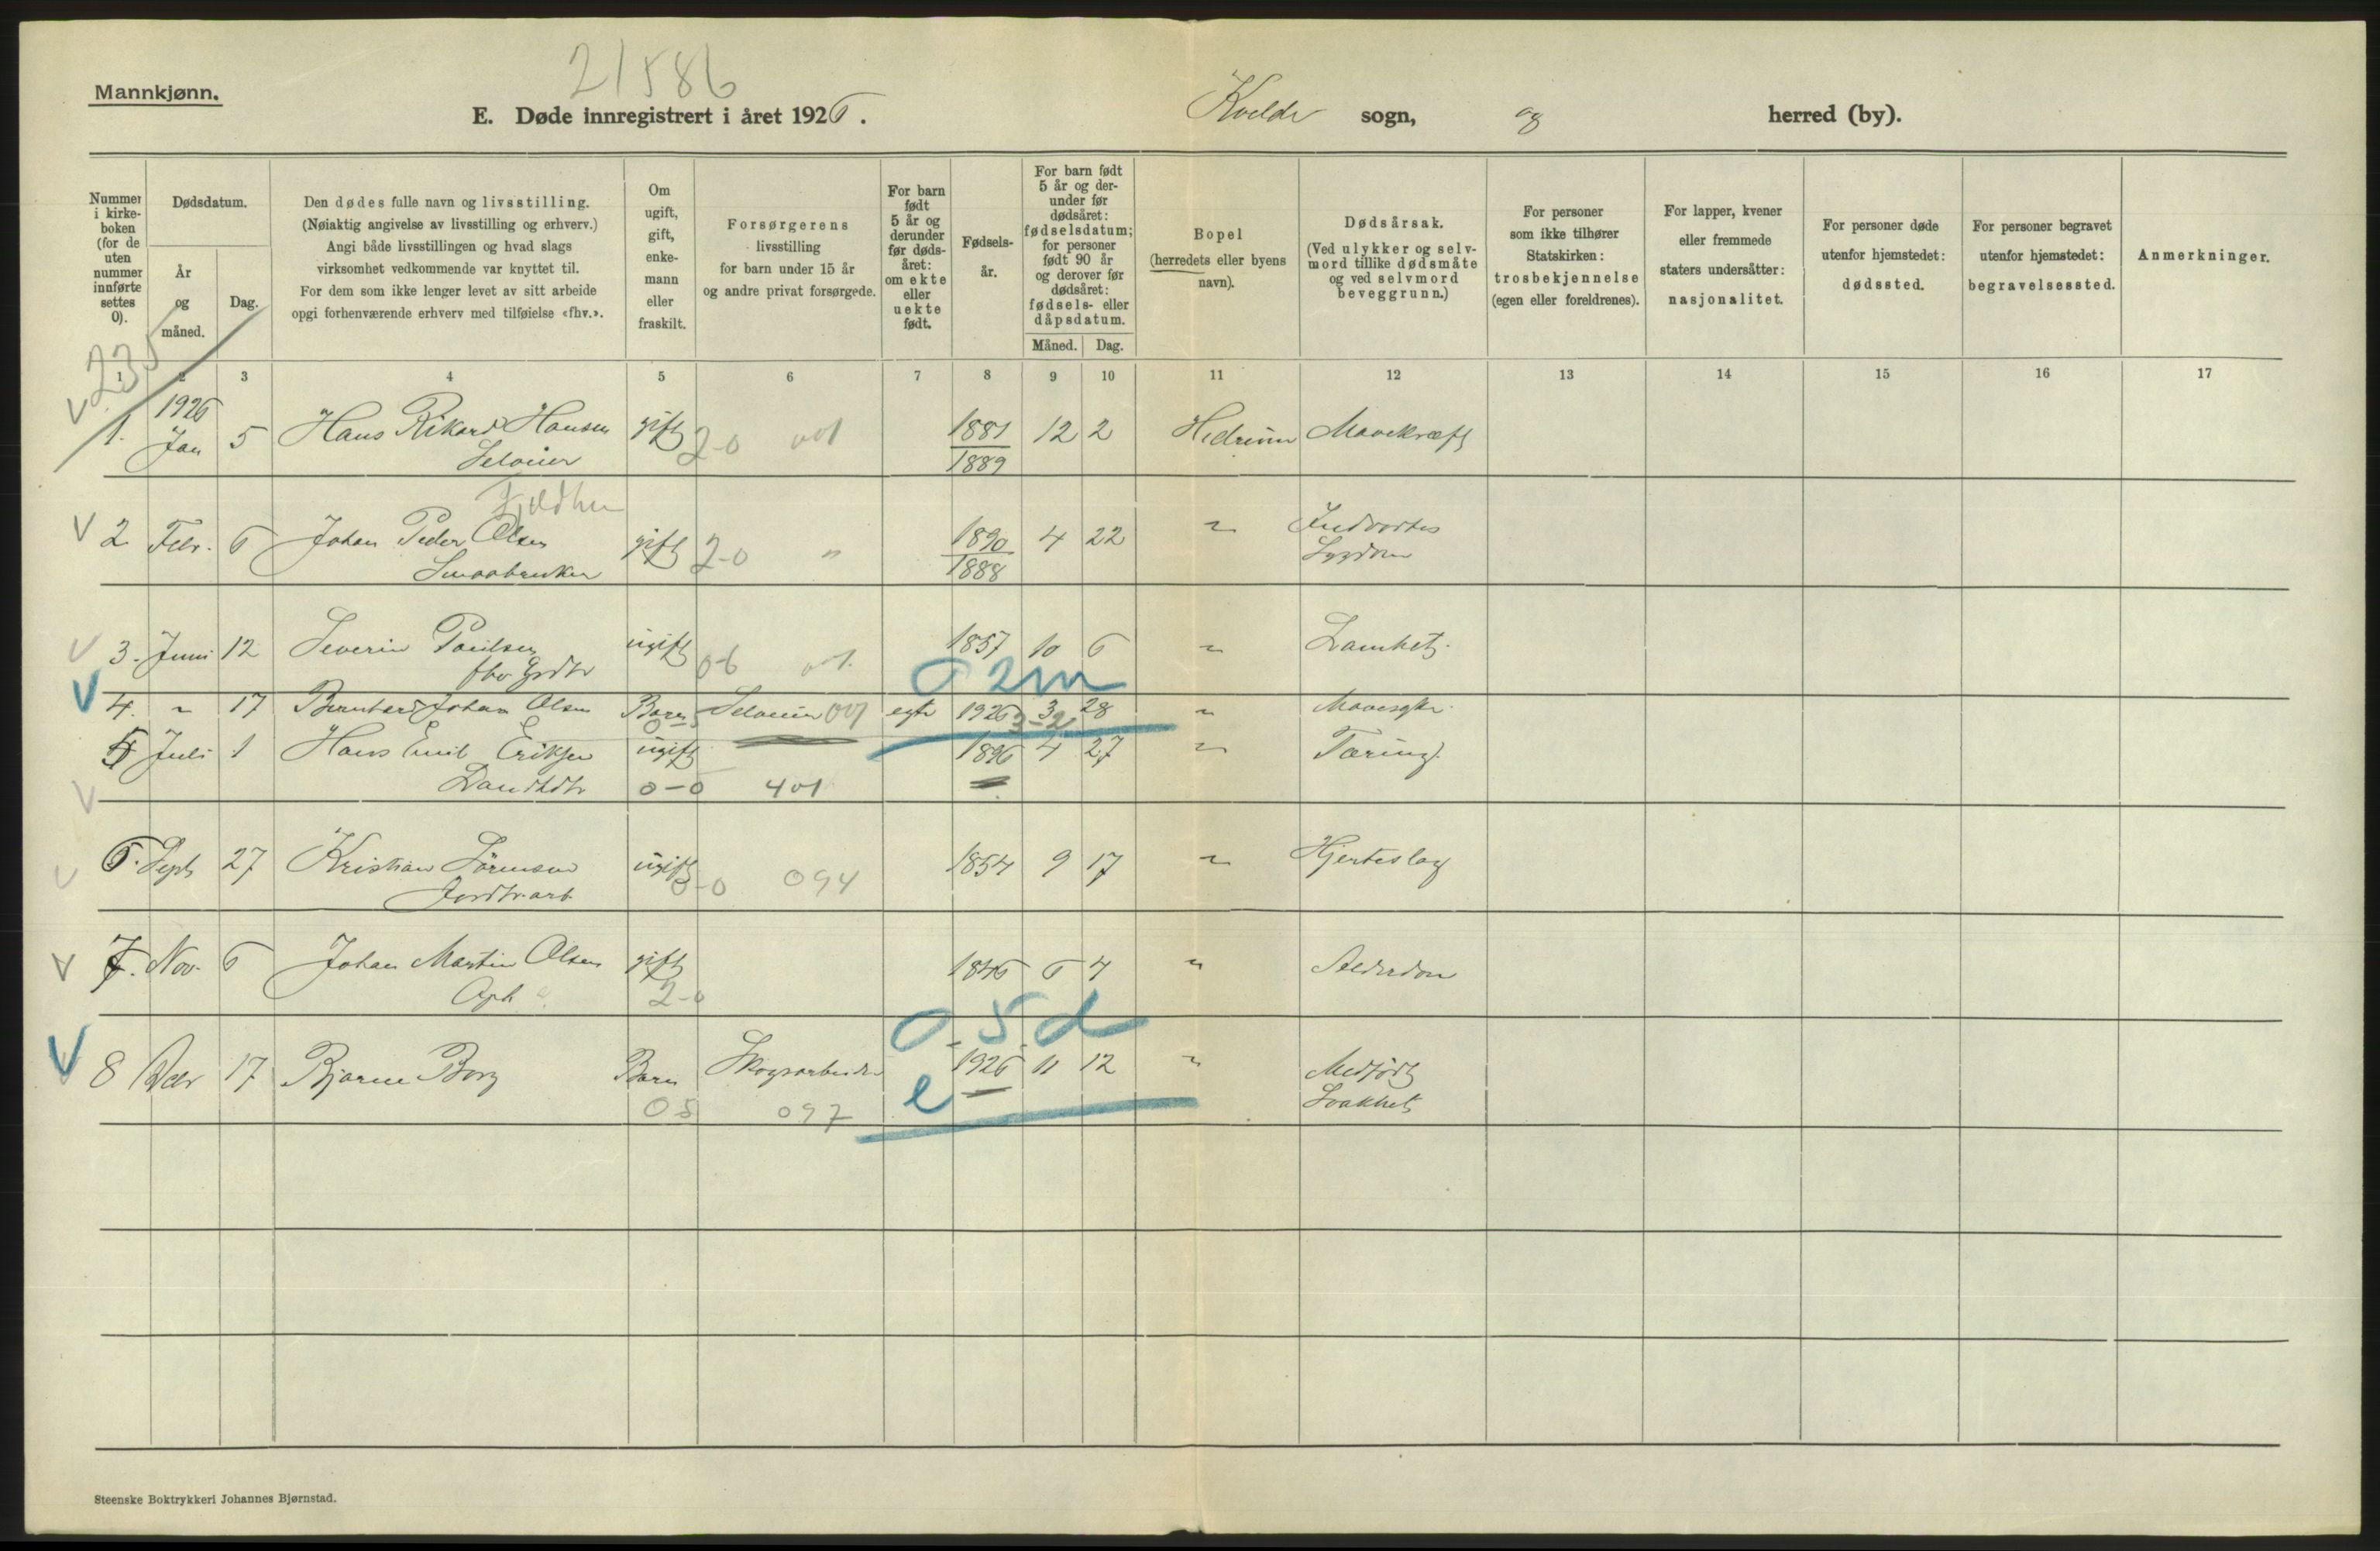 21586
Mannkjønn.
E. Døde innregistrert i året 1926. Kvelde sogn, og herred (by).
Nummer i kirkeboken (for de uten nummer innførte settes 0).
Dødsdatum.
År og måned.
Dag.
Den dødes fulle navn og livsstilling.
(Nøiaktig angivelse av livsstilling og erhverv.)
Angi både livsstillingen og hvad slags
virksomhet vedkommende var knyttet til.
For dem som ikke lenger levet av sitt arbeide
opgi forhenværende erhverv med tilføielse «fhv.».
Om ugift, gift, enkemann eller fraskilt.
Forsørgerens
livsstilling
for barn under 15 år
og andre privat forsørgede.
For barn født 5 år og derunder før dødsåret: om ekte eller uekte født.
Fødselsår.
For barn født 5 år og derunder før dødsåret: fødselsdatum; for personer født 90 år og derover før dødsåret: fødsels- eller dåpsdatum.
Måned.
Dag.
Bopel
(herredets eller byens
navn).
Dødsårsak.
(Ved ulykker og selv-
mord tillike dødsmåte
og ved selvmord
beveggrunn.)
For personer
som ikke tilhører
Statskirken:
trosbekjennelse
(egen eller foreldrenes).
For lapper, kvener
eller fremmede
staters undersåtter:
nasjonalitet.
For personer døde
utenfor hjemstedet:
dødssted.
For personer begravet
utenfor hjemstedet:
begravelsessted.
Anmerkninger.
235
1 2 3 4 5 6 7 8 9 10 11 12 13 14 15 16 17
1926
1. Jan 5 Hans Rikard Hansen gift 2-0 001 1881 12 2 Hedrum Mavekræft
Selveier 1889
2 Febr. 6 Johan Peder Olsen gift 2-0 " 1890 4 22 " Indvortes
Smaabruker 1888 Sygdom
3. Juni 12 Severin Paulsen ugift 06 001 1857 10 6 " Lamhet.
fhv Grdbr
0 2m
4. " 17 Bernhard Johan Olsen Barn Selveier 001 egte 1926 3 28 " Mavesyke.
3-2
5 Juli 1 Hans Emil Eriksen ugift 1896 4 27 " Tæring.
0-0 401
6. Sept 27 Kristian Sørensen ugift 0-0 094 1854 9 17 " Hjerteslag
Jordbr.arb.
7. Nov. 6 Johan Martin Olsen gift 1846 6 4 " Alderdom
2-0
0 5 d
8 Dec 17 Bjarne Borg Barn Skogsarbeider 1926 11 12 " Medfødt
05 097 e Svakhet
Steenske Boktrykkeri Johannes Bjørnstad.